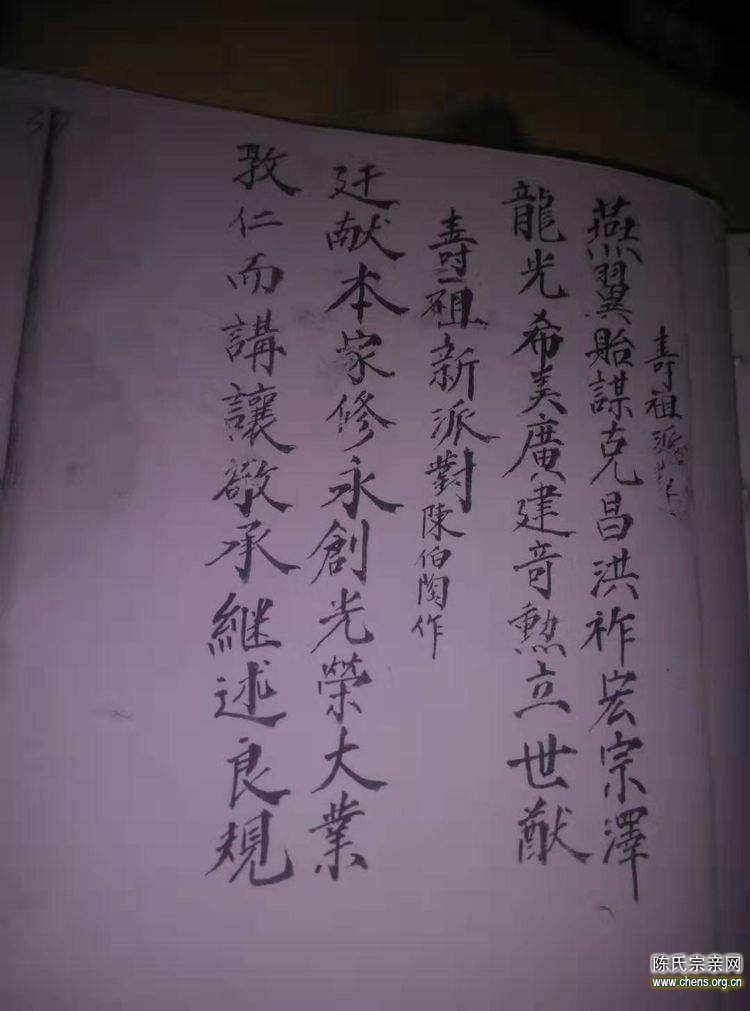 壽祖派
燕翼貽謀克昌洪祚宏宗澤
龍光希美廣建奇勲立世猷
壽祖新派對陳伯陶作
廷献本家修永創光榮大業
敦仁而講讓敬承継述良規
陈氏宗亲网
www.chens.org.cn